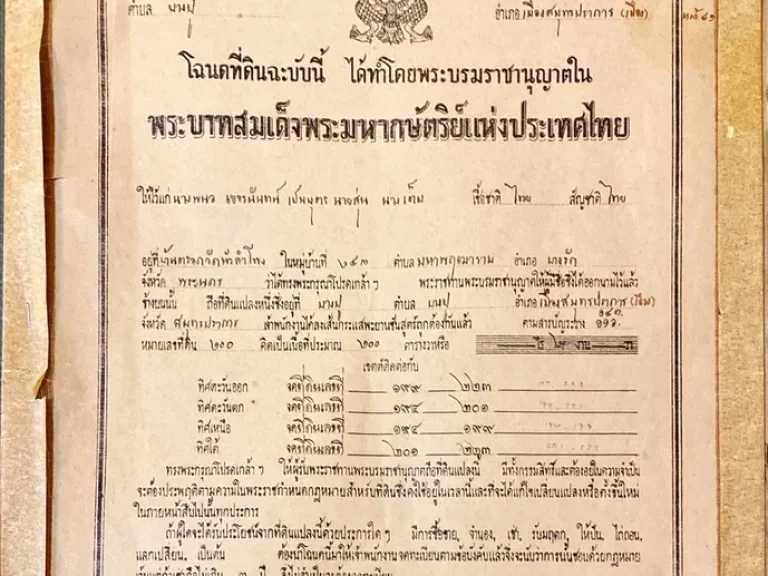 ตำบล บางปู อำเภอ เมืองสมุทรปราการ (เมือง)
โฉนดที่ดินฉะบับนี้ ได้ทำโดยพระบรมราชานุญาตใน
พระบาทสมเด็จพระมหากษัตริย์แห่งประเทศไทย
ให้ไว้แก่ เป็นบุตร เชื้อชาติ ไทย สัญชาติ ไทย
อยู่ที่ ในหมู่บ้านที่ ๖๔๓ ตำบล มหาพฤฒาราม อำเภอ บางรัก
จังหวัด พระนคร ว่าได้ทรงพระกรุณาโปรดเกล้า ฯ พระราชทานพระบรมราชานุญาตให้ผู้มีชื่อซึ่งได้ออกนามไว้แล้ว
ข้างบนนั้น ถือที่ดินแปลงหนึ่งซึ่งอยู่ที่ บางปู ตำบล บางปู อำเภอ เมืองสมุทรปราการ (เมือง)
จังหวัด สมุทรปราการ เจ้าพนักงานได้ลงเส้นกระแสพะยานชันสูตร์ถูกต้องกันแล้ว ตามสารบัญระวาง
หมายเลขที่ดิน ๒๐๐ คิดเป็นเนื้อที่ประมาณ ๒๐๐ ตารางวาหรือ ไร่ งาน วา
เขตต์ติดต่อกัน
ทิศตะวันออก จดที่ดินเลขที่ ๑๙๙ ๒๒๓
ทิศตะวันตก จดที่ดินเลขที่ ๑๙๔ ๒๐๑
ทิศเหนือ จดที่ดินเลขที่ ๑๙๔ ๑๙๙
ทิศใต้ จดที่ดินเลขที่ ๒๐๑ ๒๒๓
ทรงพระกรุณาโปรดเกล้า ฯ ให้ผู้รับพระราชทานพระบรมราชานุญาตถือที่ดินแปลงนี้ มีทั้งกรรมสิทธิ์และต้องอยู่ในความจำเป็น
จะต้องประพฤติตามความในพระราชกำหนดกฎหมายสำหรับที่ดินซึ่งตั้งใช้อยู่ในเวลานี้และที่จะได้แก้ไขเปลี่ยนแปลงหรือตั้งขึ้นใหม่
ในภายหน้าสืบไปนั้นทุกประการ
ถ้าผู้ใดจะได้รับประโยชน์จากที่ดินแปลงนี้ด้วยประการใด ๆ มีการซื้อขาย, จำนอง, เช่า, รับมฤดก, ให้ปัน, ไถ่ถอน,
แลกเปลี่ยน, เป็นต้น ต้องนำโฉนดนี้มาให้เจ้าพนักงานจดทะเบียนตามข้อบังคับแล้วจึงจะนับว่าการนั้นชอบด้วยกฎหมาย